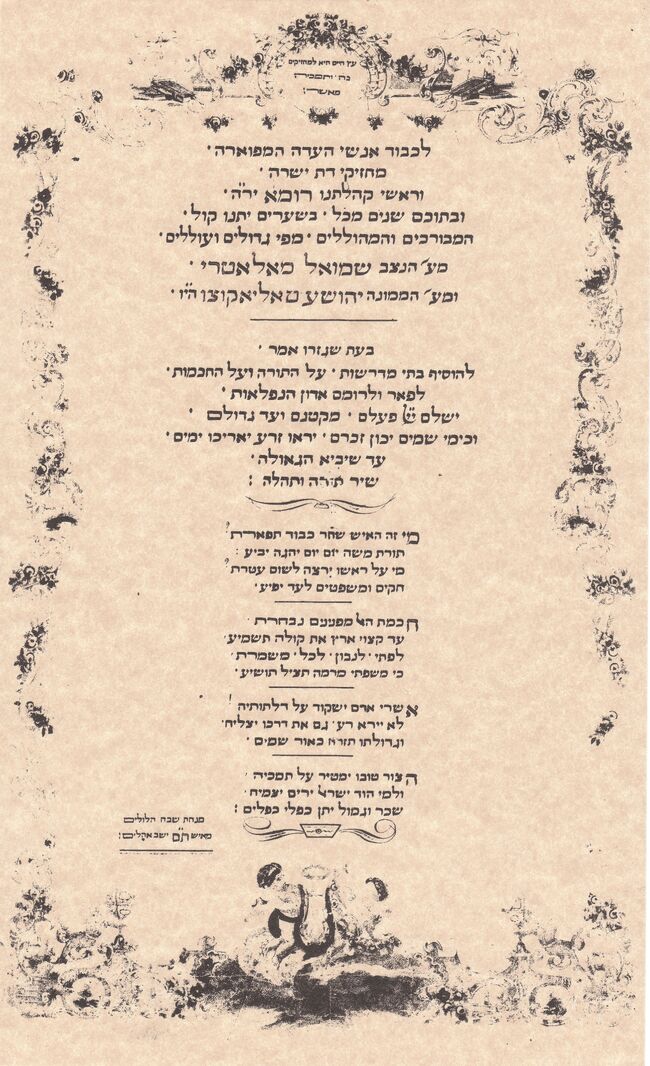 עץ חיים היא למחזיקים
בה ותמכיה
מאשר :
לכבוד אנשי העדה המפוארה ·
מחזיקי דת ישרה ·
וראשי קהלתנו רומא יר״ה ·
ובתוכם שנים מכל · בשערים יתנו קול ·
המבורכים והמהוללים · מפי גדולים ועוללים ·
מע׳ הנצב שמואל מאלאטרי ·
ומע׳ הממונה יהושע טאליאקוצו הי״ו ·
בעת שגזרו אמר ·
להוסיף בתי מדרשות · על התורה ועל החכמות ·
לפאר ולרומם אדון הנפלאות ·
ישלם פעלם · מקטנם ועד גדולם ·
וכימי שמים יכון זכרם · יראו זרע יאריכו ימים ·
עד שיביא הגאולה ·
שיר תודה ותהלה :
מי זה האיש שחר כבוד תפארת ?
תורת משה יום יום יהגה יביע :
מי על ראשו ירצה לשום עטרת ?
חקים ומשפטים לעד יפיע ·
חכמת האל מפנינים נבחרת ·
עד קצוי ארץ את קולה תשמיע ·
לפתי · לנבון · לכל · משמרת ·
כי משפתי מרמה תציל תושיע ·
אשרי אדם ישקוד על דלתותיה !
לא יירא רע · גם את דרכו יצליח ·
וגדולתו תזרח כאור שמים ·
הצור טובו ימטיר על תמכיה ·
ולמי הוד ישראל ירים יצמיח ·
שכר וגמול יתן כפלי כפלים :
מנחת שבח הלולים
מאיש תם ישב אהלים :